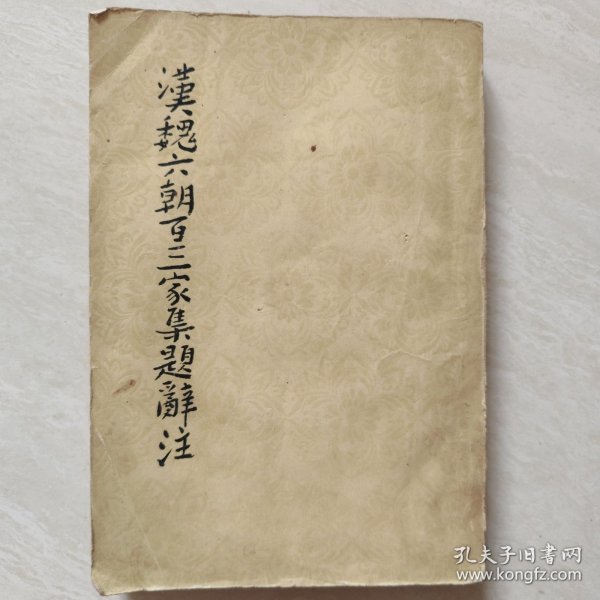 漢魏六朝百三家集題辭注
孔夫子旧書网
www.kongfz.com